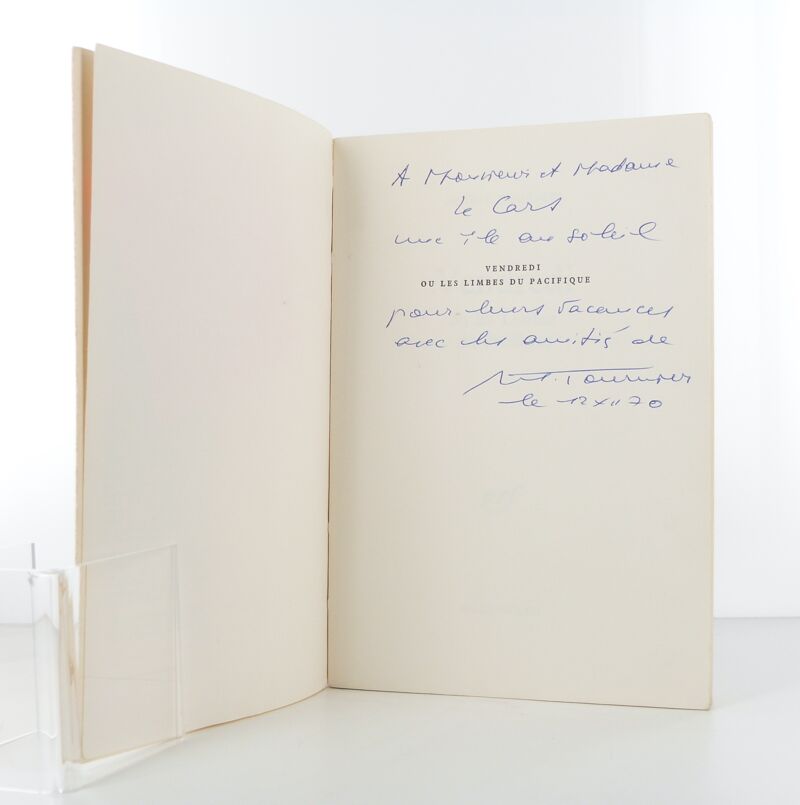 A Monsieur et Madame
Le Cars
une île au soleil
VENDREDI
OU LES LIMBES DU PACIFIQUE
pour leurs vacances
avec les amitiés de
M. Tournier
le 12 XII 70